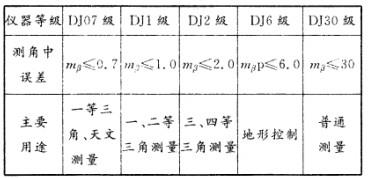 仪器等级 DJ07 级 DJ1 级 DJ2 级 DJ6 级 DJ30 级
测角中
误差
mβ≤0.7 mβ≤1.0 mβ≤2.0 mβp≤6.0 mβ≤30
主要
用途
一等三
角、天文
测量
一、二等
三角测量
三、四等
三角测量
地形控制
普通
测量